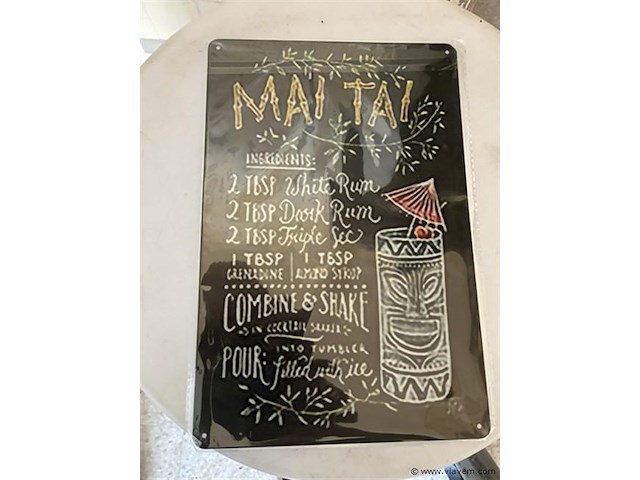 MAI TAI
INGREDIENTS:
2 TBSP White Rum
2 TBSP Dark Rum
2 TBSP Triple Sec
1 TBSP | 1 TBSP
GRENADINE | ALMOND SYRUP
COMBINE & SHAKE
IN COCKTAIL SHAKER
POUR: INTO TUMBLER
filled with ice
© www.vlavem.com